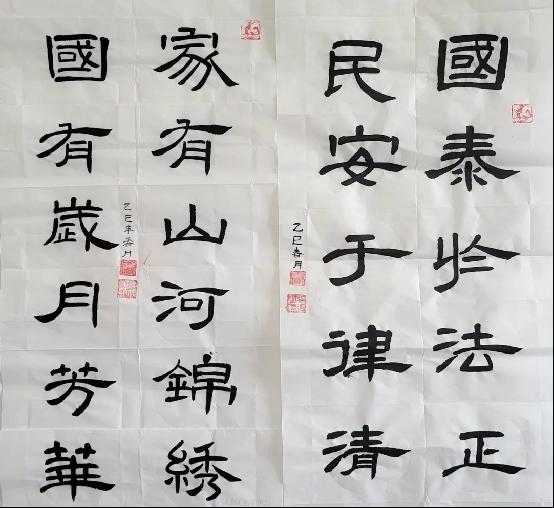 國泰於法正
民安于律清
乙巳春月
家有山河錦綉
國有歲月芳華
乙巳年月